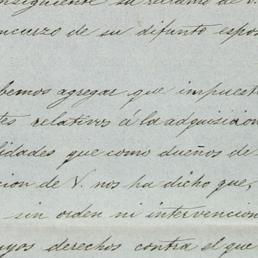 nsiguiente su reclamo de V.
ncurzo de su difunto espos
bemos agregar que impuest
tes relativos á la adquisicion
lidades que como dueños de
cion de V. nos ha dicho que,
sin orden ni intervencion
uyos derechos contra el que